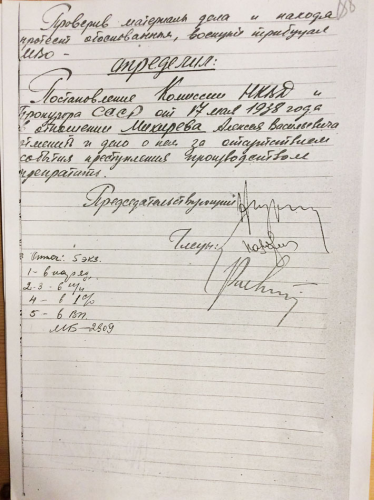 Проверив материалы дела и находя
протест обоснованным, военный трибунал
МВО –
определил:
Постановление Комиссии НКВД и
Прокурора СССР от 17 мая 1938 года
в отношении Макарева Алексея Васильевича
отменить и дело о нем за отсутствием
события преступления производством
прекратить.
Председательствующий
Члены:
5 экз.
1 – в наряд
2-3 – в
4 – в
5 – в ВП.
МБ – 2909